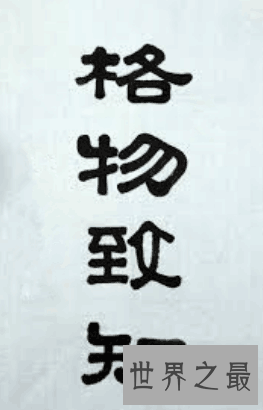 格物致知
世界之最